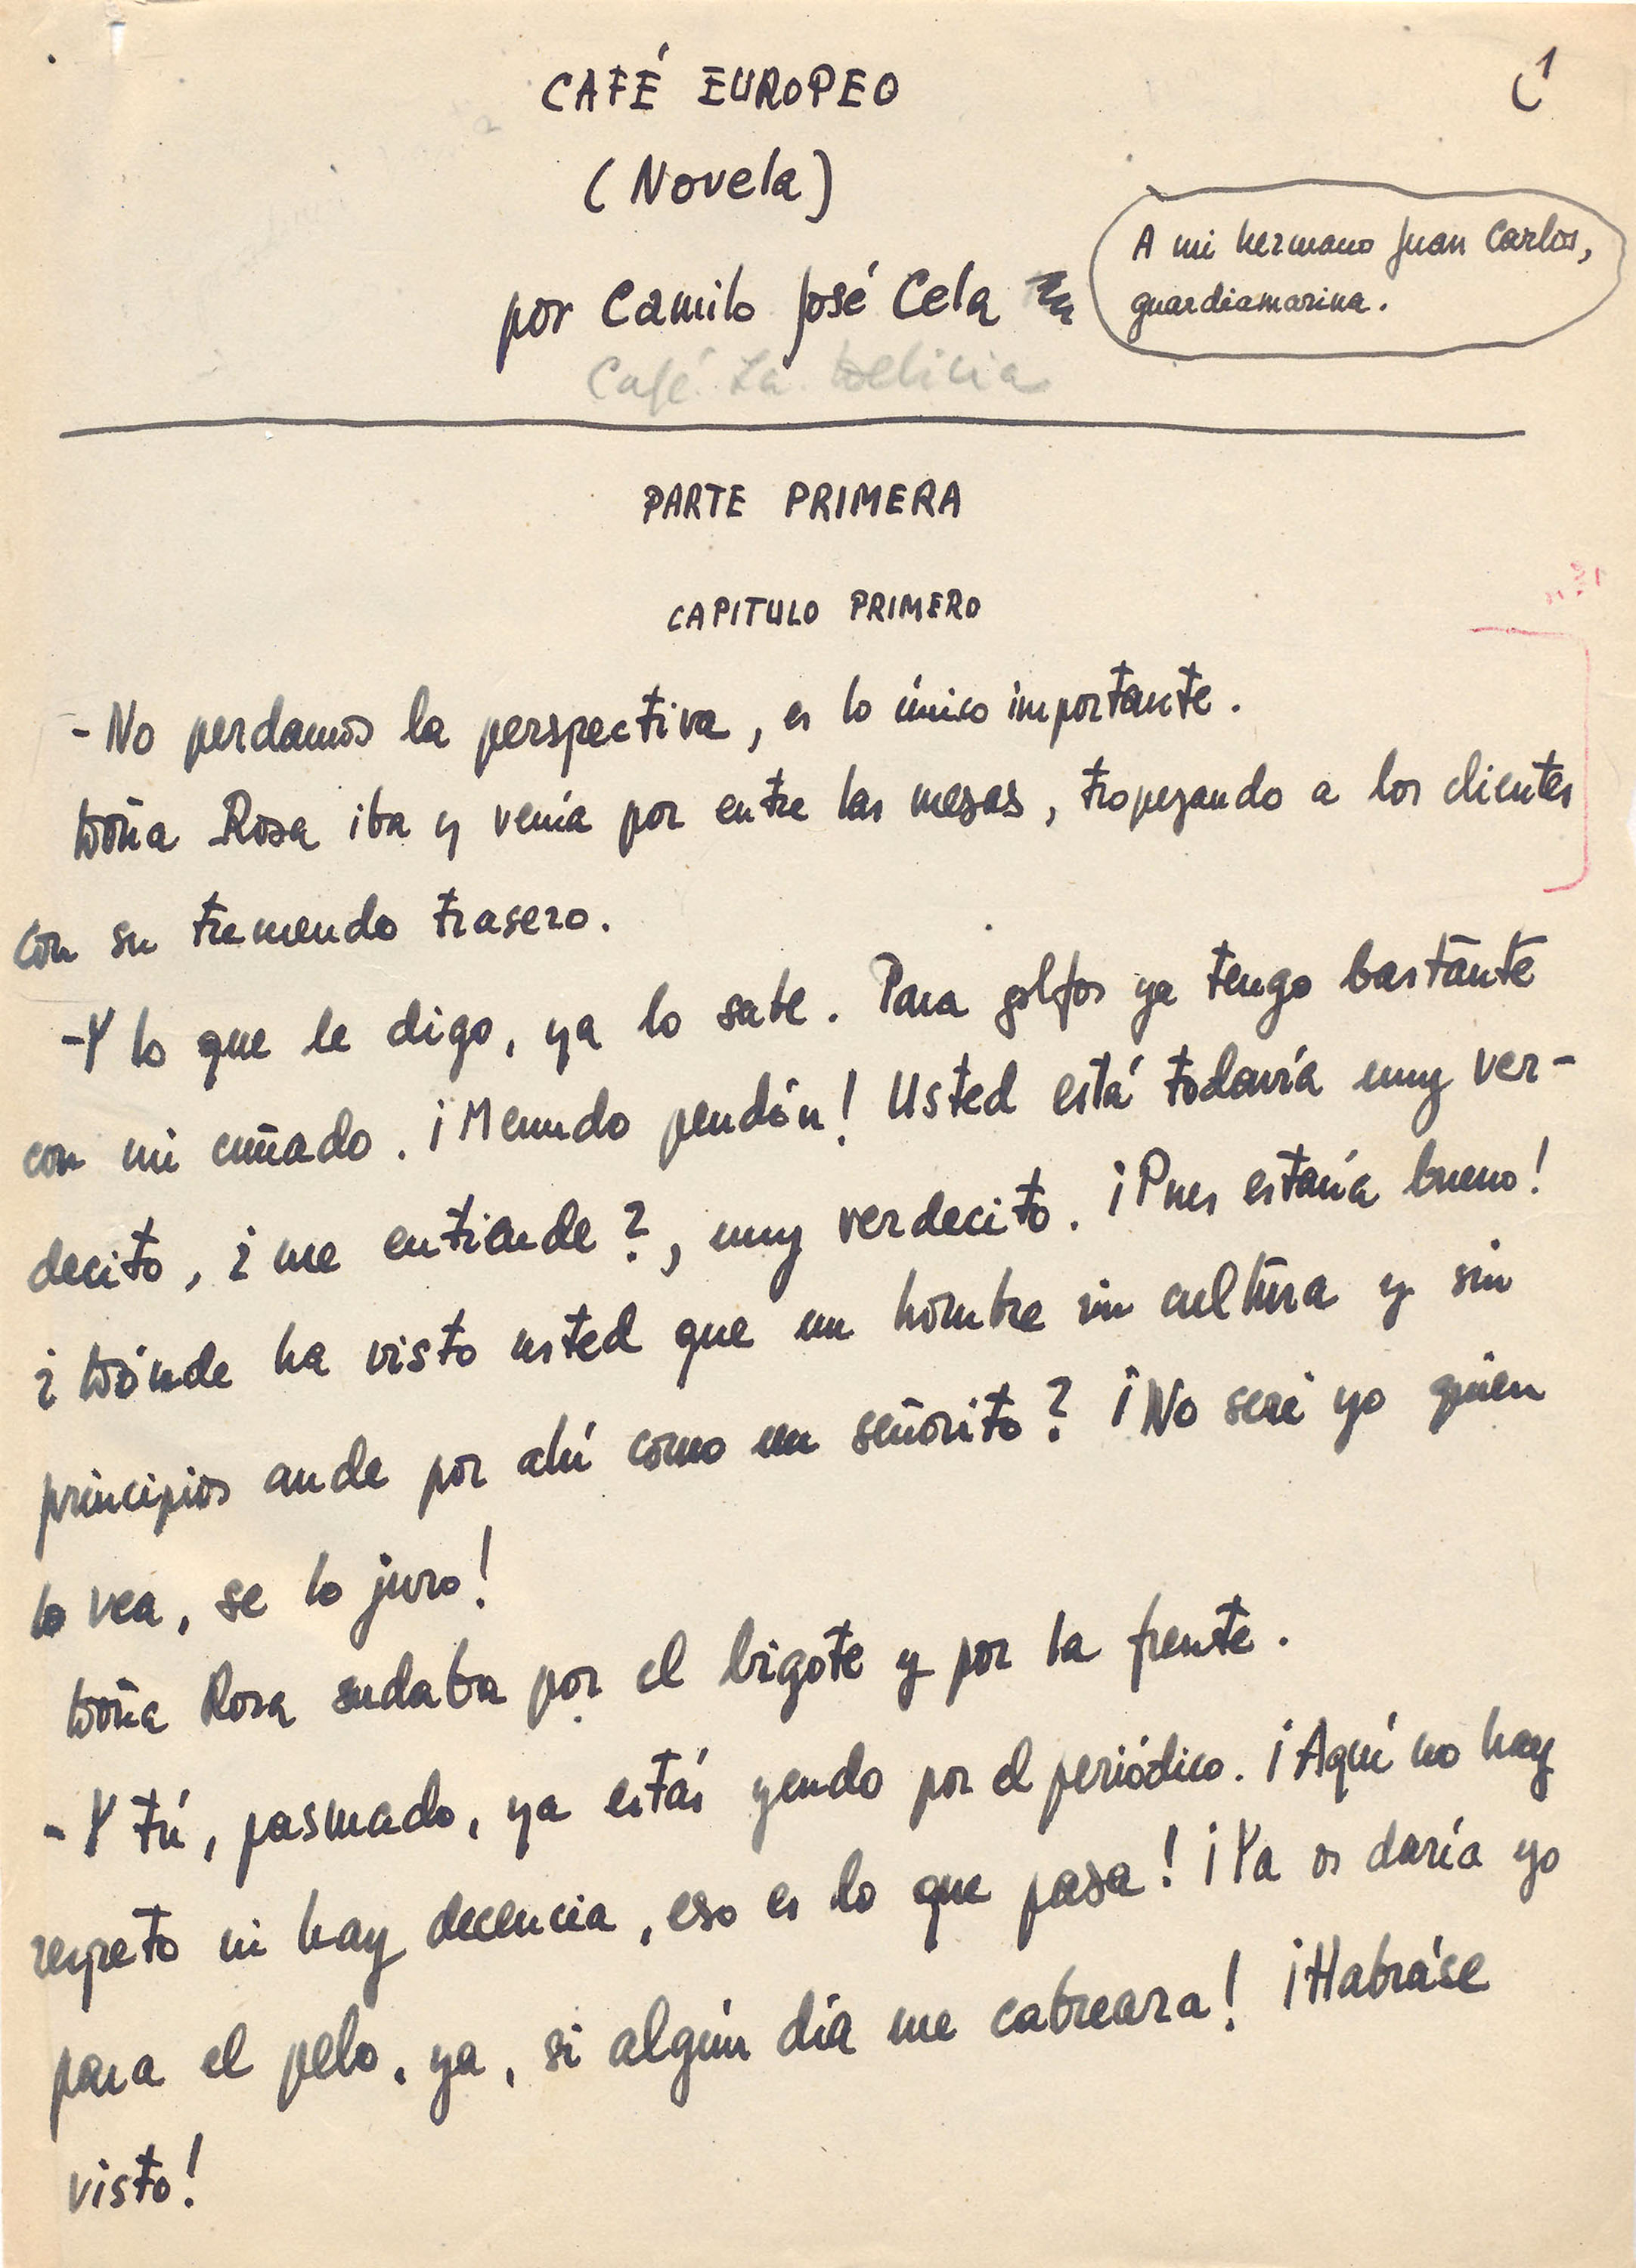 1
CAFÉ EUROPEO
(Novela)
por Camilo José Cela
A mi hermano Juan Carlos,
guardiamarina.
Café La Delicia
PARTE PRIMERA
CAPITULO PRIMERO
-No perdamos la perspectiva, es lo único importante.
Doña Rosa iba y venía por entre las mesas, tropezando a los clientes
con su tremendo trasero.
-Y lo que le digo, ya lo sabe. Para golfos ya tengo bastante
con mi cuñado. ¡Menudo pendón! Usted está todavía muy ver-
decito, ¿me entiende?, muy verdecito. ¡Pues estaría bueno!
¿Dónde ha visto usted que un hombre sin cultura y sin
principios ande por ahí como un señorito? ¡No seré yo quien
lo vea, se lo juro!
Doña Rosa sudaba por el bigote y por la frente.
-Y tú, pasmado, ya estás yendo por el periódico. ¡Aquí no hay
respeto ni hay decencia, eso es lo que pasa! ¡Ya os daría yo
para el pelo, ya, si algún día me cabreara! ¡Habráse
visto!